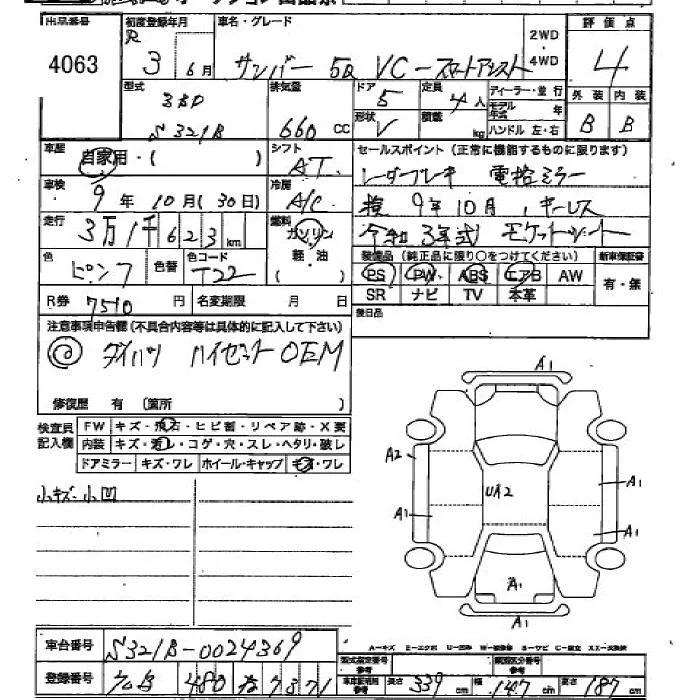 出品番号
4063
初度登録年月
R 3 6月
車名・グレード
サンバー 5D VC-スマートアシスト
2WD
4WD
評価点
4
型式
3BD
S321B
排気量
660 CC
ドア
5
定員
4人
形状
V
積載
kg
ディーラー・並行
モデル年式 年
ハンドル 左・右
外装 内装
B B
車歴
自家用・( )
シフト
AT
セールスポイント (正常に機能するものに限ります)
レーダーブレーキ 電格ミラー
検 9年10月, キーレス
令和3年式 モケットシート
車検
9年 10月(30日)
冷房
A/C
走行
3万1千623km
燃料
ガソリン
軽油
色
ピンク
色替
色コード
T22
装備品 (純正品に限り○をつけてください)
新車保証書
PS PW ABS エアB AW
有・無
SR ナビ TV 本革
R券 7510 円
名変期限 月 日
後日品
注意事項申告欄 (不具合内容等は具体的に記入して下さい)
◎ ダイハツ ハイゼット OEM
修復歴 有 (箇所 )
検査員記入欄
FW キズ・飛石・ヒビ割・リペア跡・X要
内装 キズ・汚レ・コゲ・穴・スレ・ヘタリ・破レ
ドアミラー キズ・ワレ ホイール・キャップ キズ・ワレ
小キズ・小凹
A1
A2
UA2
A1
A1
A1
A1
A1
車台番号 S321B-0024369
登録番号
480 7371
A-キズ E-エクボ U-凹み W-補修跡 S-サビ C-腐食 XX-交換済
型式指定番号 参考
類別区分番号 参考
車庫証明用 参考
長さ 339 cm 幅 147 cm 高さ 187 cm